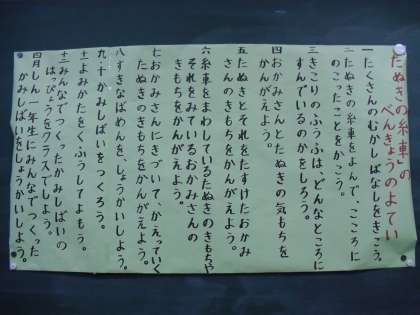 「たぬきの糸車」の
べんきょうのよてい
一たくさんのむかしばなしをきこう。
二たぬきの糸車をよんで、こころに
のこったことをかこう。
三きこりのふうふは、どんなところに
すんでいるのかをしろう。
四おかみさんとたぬきの気もちを
かんがえよう。
五たぬきとそれをたすけたおかみ
さんのきもちをかんがえよう。
六糸車をまわしているたぬきのきもちや
それをみているおかみさんの
きもちをかんがえよう。
七おかみさんにきづいて、かえっていく
たぬきのきもちをかんがえよう。
八すきなばめんを、しょうかいしよう。
九、十かみしばいをつくろう。
十一よみかたをくふうしてよもう。
十二みんなでつくったかみしばいの
はっぴょうをクラスでしよう。
四月しん一年生にみんなでつくった
かみしばいをしょうかいしよう。